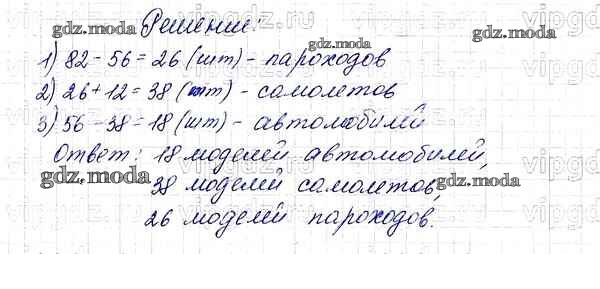 Решение:
1) 82 - 56 = 26 (шт) - пароходов
2) 26 + 12 = 38 (шт) - самолетов
3) 56 - 38 = 18 (шт) - автомобилей
Ответ: 18 моделей автомобилей,
38 моделей самолетов,
26 моделей пароходов.
gdz.moda
gdz.moda
gdz.moda
gdz.moda
gdz.moda
gdz.moda